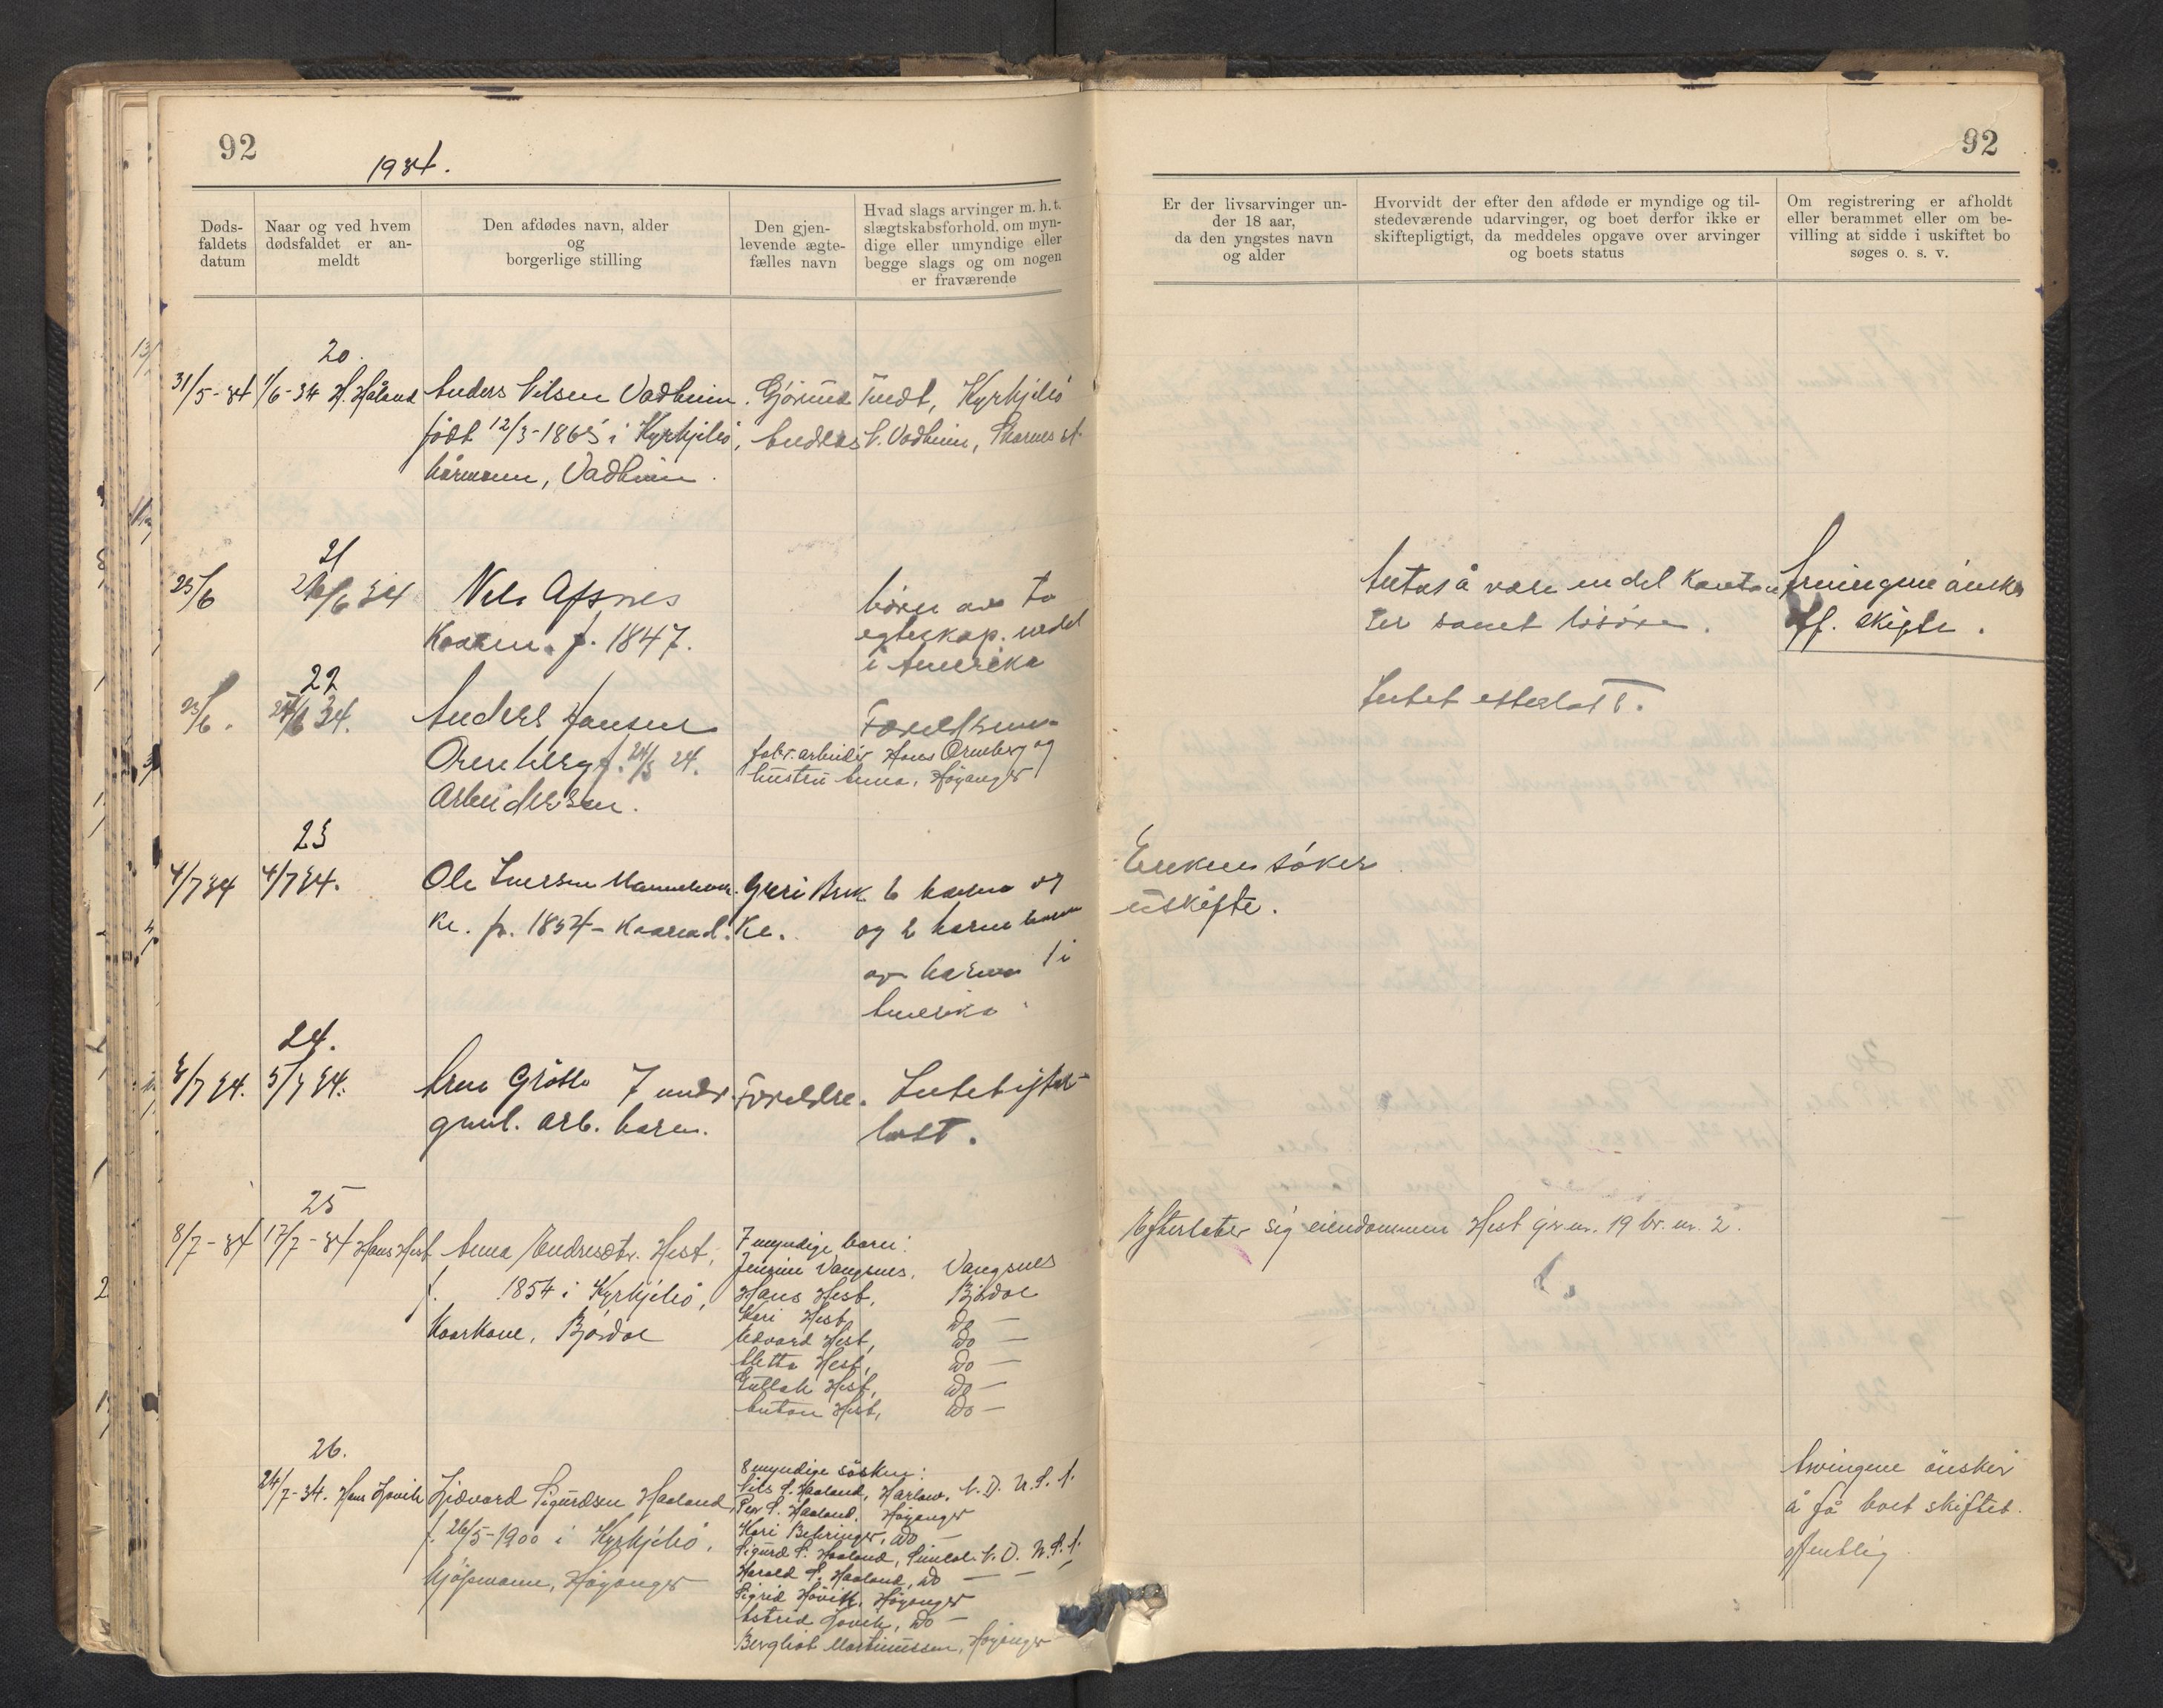 92
1934.
92
Døds-
faldets
datum
Naar og ved hvem
dødsfaldet er an-
meldt
Den afdødes navn, alder
og
borgerlige stilling
Den gjen-
levende ægte-
fælles navn
Hvad slags arvinger m. h. t.
slægtskabsforhold, om myn-
dige eller umyndige eller
begge slags og om nogen
er fraværende
Er der livsarvinger un-
der 18 aar,
da den yngstes navn
og alder
Hvorvidt der efter den afdøde er myndige og til-
stedeværende udarvinger, og boet derfor ikke er
skiftepligtigt, da meddeles opgave over arvinger
og boets status
Om registrering er afholdt
eller berammet eller om be-
villing at sidde i uskiftet bo
søges o. s. v.
20.
31/5-34 1/6-34 H. Håland Anders Nilsen Vadheim. Gjørine Kyrkjebø
født 12/3-1865 i Kyrkjebø, Anders N. Vadheim,
kårmann, Vadheim.
21
23/6 26/6 34 Nils
f. 1847.
børn av to
egteskap. en del
i Amerika
Antas å være en del
samt løsøre.
Arvingene ønsker
off. skifte.
22
23/6. 34. Anders Hansen
Orneberg f. 24.
Arbeidersøn.
Foreldrene.
fabr. arbeider Hans Ornberg og
hustru Anna, Høyanger
Intet efterlatt.
23
4/7 34 4/7 34. Ole Iversen
f. 1854 -
Guri
6 barn og
og 2 barne barn
av barna 1 i
Amerika
Enken søker
uskifte.
24.
3/7 34. 5/7 34. Arne 7 mndr.
gml. arb. barn.
Foreldre. Intet efter-
latt.
25
8/7-34 17/7-34 Hans Hest Anna Endresdtr. Hest,
f. 1854 i Kyrkjebø,
Kaarkone, Bjordal
7 myndige barn:
Jensine Vangsnes, Vangsnes
Hans Hest, Bjordal
Kari Hest, do —
Edvard Hest, do —
Hest, do —
Gullak Hest, do —
Anton Hest, do —
Efterlater sig eiendommen Hest g.nr. 19 br. nr. 2.
26.
24/7-34. Hans Hovik Hjalvard Sigurdsen Haaland,
f. 26/5-1900 i Kyrkjebø,
kjøpmann, Høyanger
8 myndige søsken:
Nils S. Haaland, Harlow, N. D. U.S.A.
Per S. Haaland, Høyanger
Kari Behringer, do —
Sigurd S. Haaland, N. D. U.S.A.
Harald S. Haaland, do — — —
Sigrid Høvik, Høyanger
Astrid Hovik, do —
Bergliot Martinussen, Høyanger
Arvingene ønsker
å få boet skiftet
offentlig